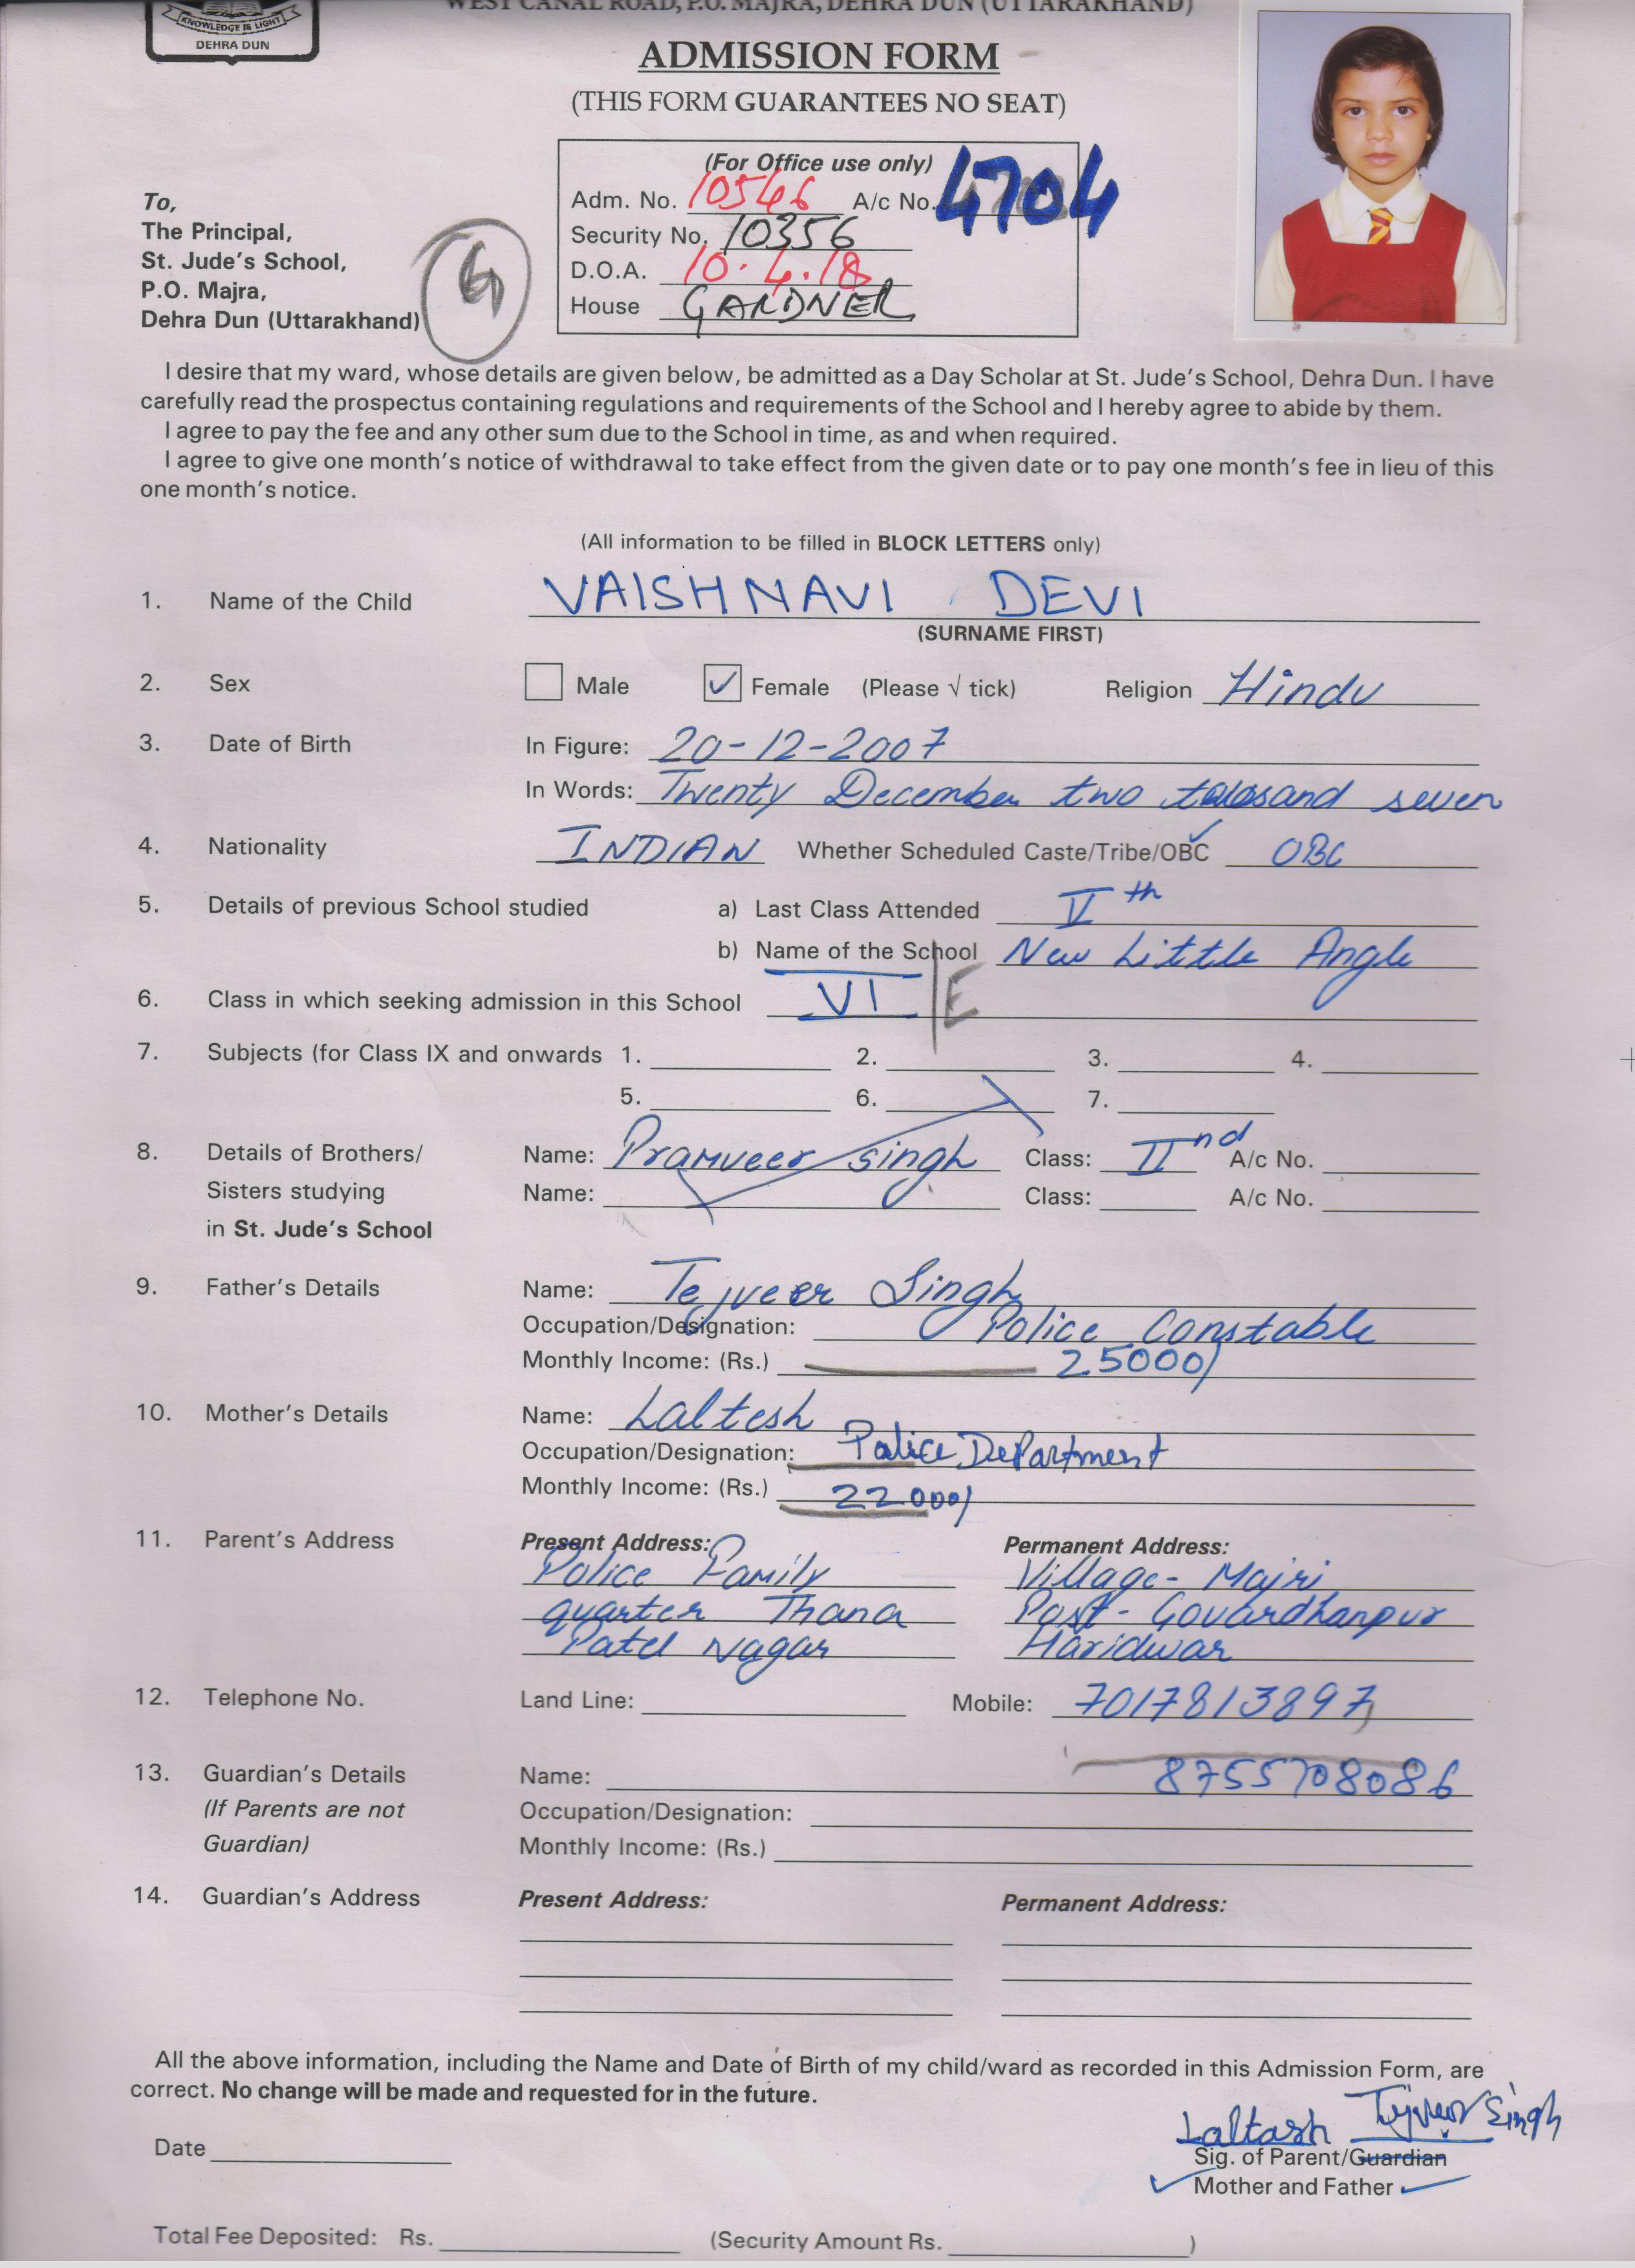 WEST CANAL ROAD, P.O. MAJRA, DEHRA DUN (UTTARAKHAND)
KNOWLEDGE IS LIGHT
DEHRA DUN
ADMISSION FORM
(THIS FORM GUARANTEES NO SEAT)
(For Office use only)
Adm. No. 10546 A/c No. 4704
Security No. 10356
D.O.A. 10.4.18
House GARDNER
To,
The Principal,
St. Jude's School,
P.O. Majra,
Dehra Dun (Uttarakhand)
I desire that my ward, whose details are given below, be admitted as a Day Scholar at St. Jude's School, Dehra Dun. I have
carefully read the prospectus containing regulations and requirements of the School and I hereby agree to abide by them.
I agree to pay the fee and any other sum due to the School in time, as and when required.
I agree to give one month's notice of withdrawal to take effect from the given date or to pay one month's fee in lieu of this
one month's notice.
(All information to be filled in BLOCK LETTERS only)
1. Name of the Child VAISHNAVI DEVI
(SURNAME FIRST)
2. Sex Male ✓ Female (Please √ tick) Religion Hindu
3. Date of Birth In Figure: 20-12-2007
In Words: Twenty December two seven
4. Nationality INDIAN Whether Scheduled Caste/Tribe/OBC OBC
5. Details of previous School studied a) Last Class Attended Vth
b) Name of the School New Little Angle
6. Class in which seeking admission in this School VI E
7. Subjects (for Class IX and onwards 1. 2. 3. 4.
5. 6. 7.
8. Details of Brothers/ Name: Pramveer singh Class: IInd A/c No.
Sisters studying Name: Class: A/c No.
in St. Jude's School
9. Father's Details Name: Tejveer Singh
Occupation/Designation: Police Constable
Monthly Income: (Rs.) 25000/
10. Mother's Details Name: Laltesh
Occupation/Designation: Police Department
Monthly Income: (Rs.) 22000/
11. Parent's Address Present Address: Permanent Address:
Police Family Village- Majri
quarter Thana Post- Govardhanpur
Patel Nagar Haridwar
12. Telephone No. Land Line: Mobile: 7017813897,
13. Guardian's Details Name: 8755708086
(If Parents are not Occupation/Designation:
Guardian) Monthly Income: (Rs.)
14. Guardian's Address Present Address: Permanent Address:
All the above information, including the Name and Date of Birth of my child/ward as recorded in this Admission Form, are
correct. No change will be made and requested for in the future.
Laltash Tejveer Singh
Date Sig. of Parent/Guardian
Mother and Father
Total Fee Deposited: Rs. (Security Amount Rs. )